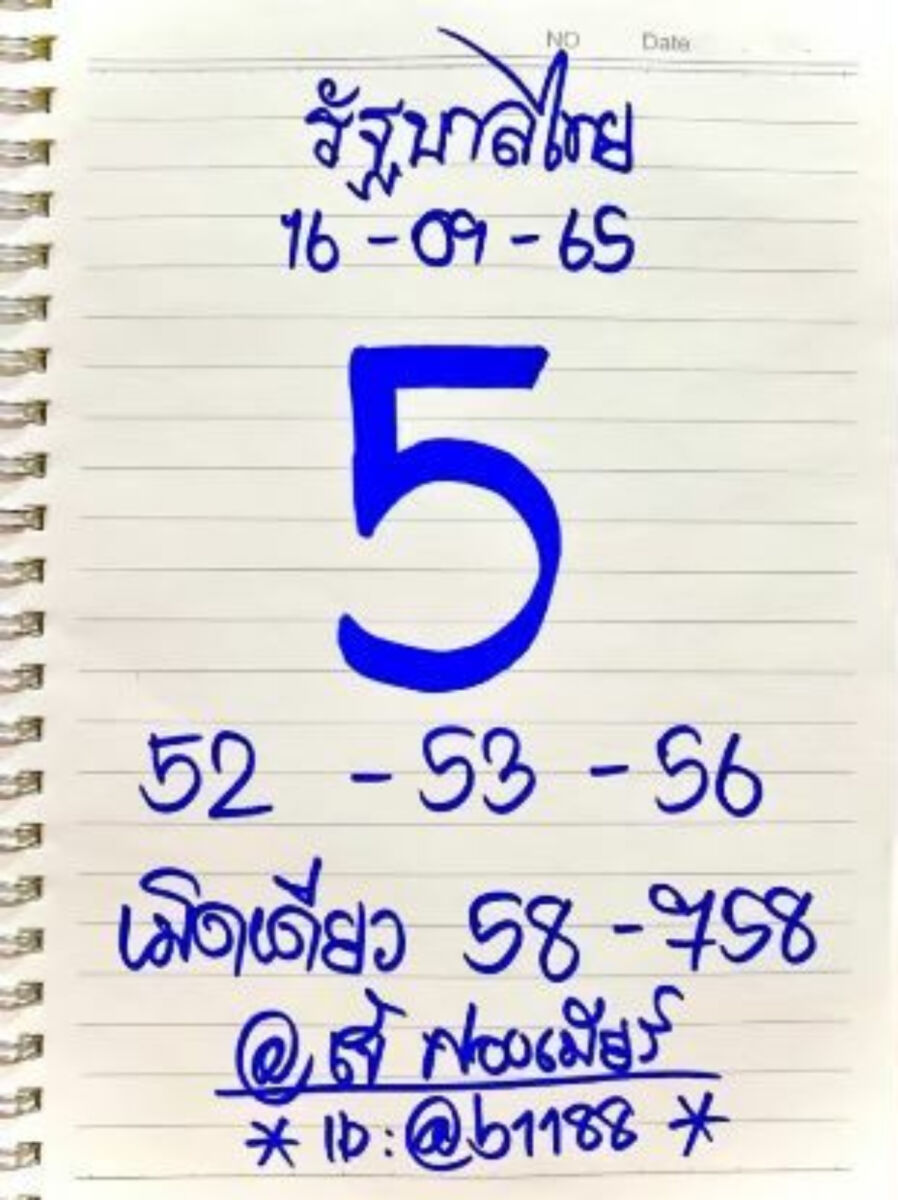 NO Date
รัฐบาลไทย
16 - 09 - 65
5
52 - 53 - 56
เม็ดเดียว 58 - 758
@
* ID : @b1188 *